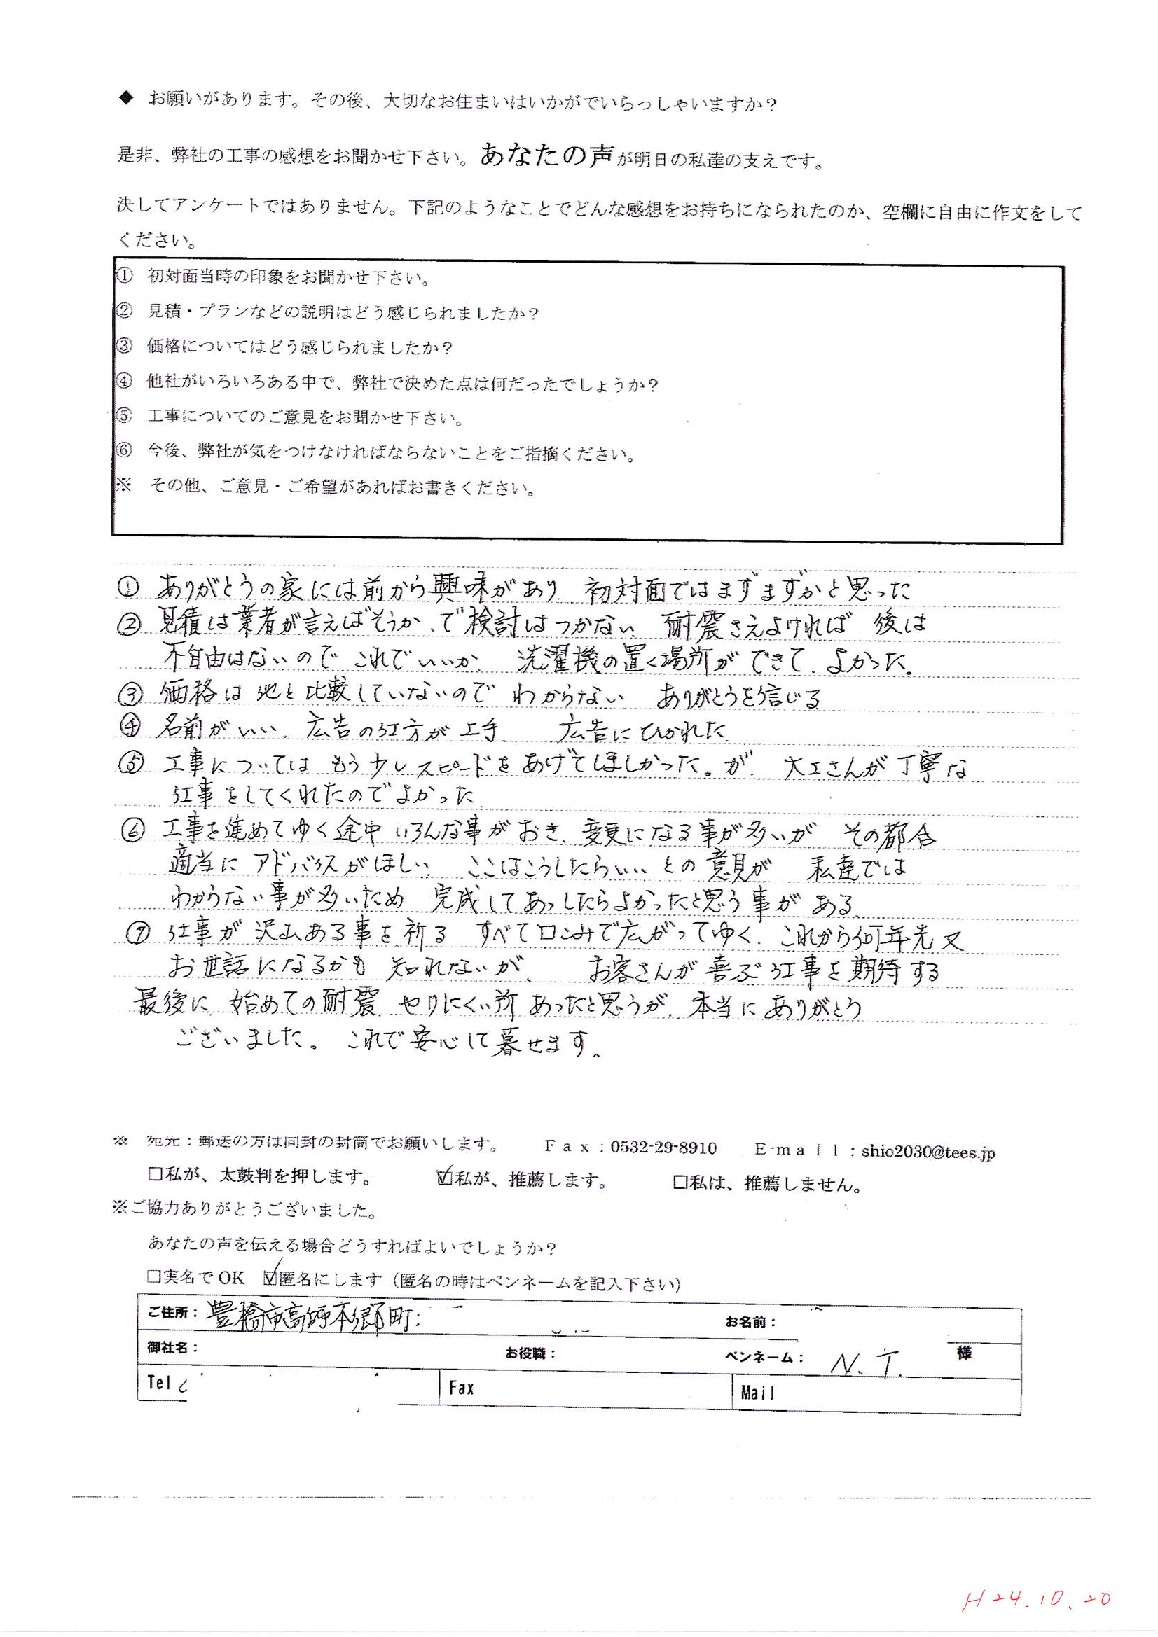 ◆ お願いがあります。その後、大切なお住まいはいかがでいらっしゃいますか？
是非、弊社の工事の感想をお聞かせ下さい。あなたの声が明日の私達の支えです。
決してアンケートではありません。下記のようなことでどんな感想をお持ちになられたのか、空欄に自由に作文をして
ください。
① 初対面当時の印象をお聞かせ下さい。
② 見積・プランなどの説明はどう感じられましたか？
③ 価格についてはどう感じられましたか？
④ 他社がいろいろある中で、弊社で決めた点は何だったでしょうか？
⑤ 工事についてのご意見をお聞かせ下さい。
⑥ 今後、弊社が気をつけなければならないことをご指摘ください。
※ その他、ご意見・ご希望があればお書きください。
① ありがとうの家には前から興味があり 初対面ではまずまずかと思った
② 見積は業者が言えばそうか、で検討はつかない 耐震さえよければ 後は
不自由はないので これでいいか 洗濯機の置く場所ができて、よかった。
③ 価格は 他と比較していないので わからない ありがとうを信じる
④ 名前がいい、広告の仕方が上手 広告にひかれた
⑤ 工事については もう少しスピードをあげてほしかった。が、大工さんが丁寧な
仕事をしてくれたのでよかった
⑥ 工事を進めてゆく途中 いろんな事がおき、変更になる事が多いが その都合
適当に アドバイスがほしい ここはこうしたらいい との意見が 私達では
わからない事が多いため 完成してあゝしたらよかったと思う事がある
⑦ 仕事が沢山ある事を祈る すべて口コミで広がってゆく、これから何年先又
お世話になるかも 知れないが、 お客さんが喜ぶ仕事を期待する
最後に 始めての耐震 やりにくい所あったと思うが、本当にありがとう
ございました。これで安心して暮せます。
※ 宛先：郵送の方は同封の封筒でお願いします。 Ｆａｘ：0532-29-8910 Ｅ-ｍａｉｌ：shio2030@tees.jp
□私が、太鼓判を押します。 ☑私が、推薦します。 □私は、推薦しません。
※ご協力ありがとうございました。
あなたの声を伝える場合どうすればよいでしょうか？
□実名でOK ☑匿名にします（匿名の時はペンネームを記入下さい）
ご住所：豊橋市高師本郷町 お名前：
御社名： お役職： ペンネーム： N.T. 様
Tel Fax Mail
H24.10.20